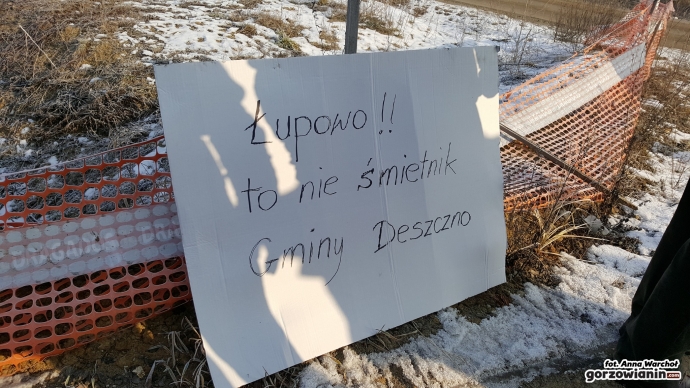 Łupowo!!
to nie śmietnik
Gminy Deszczno
fot. Anna Warchoł
gorzowianin.com